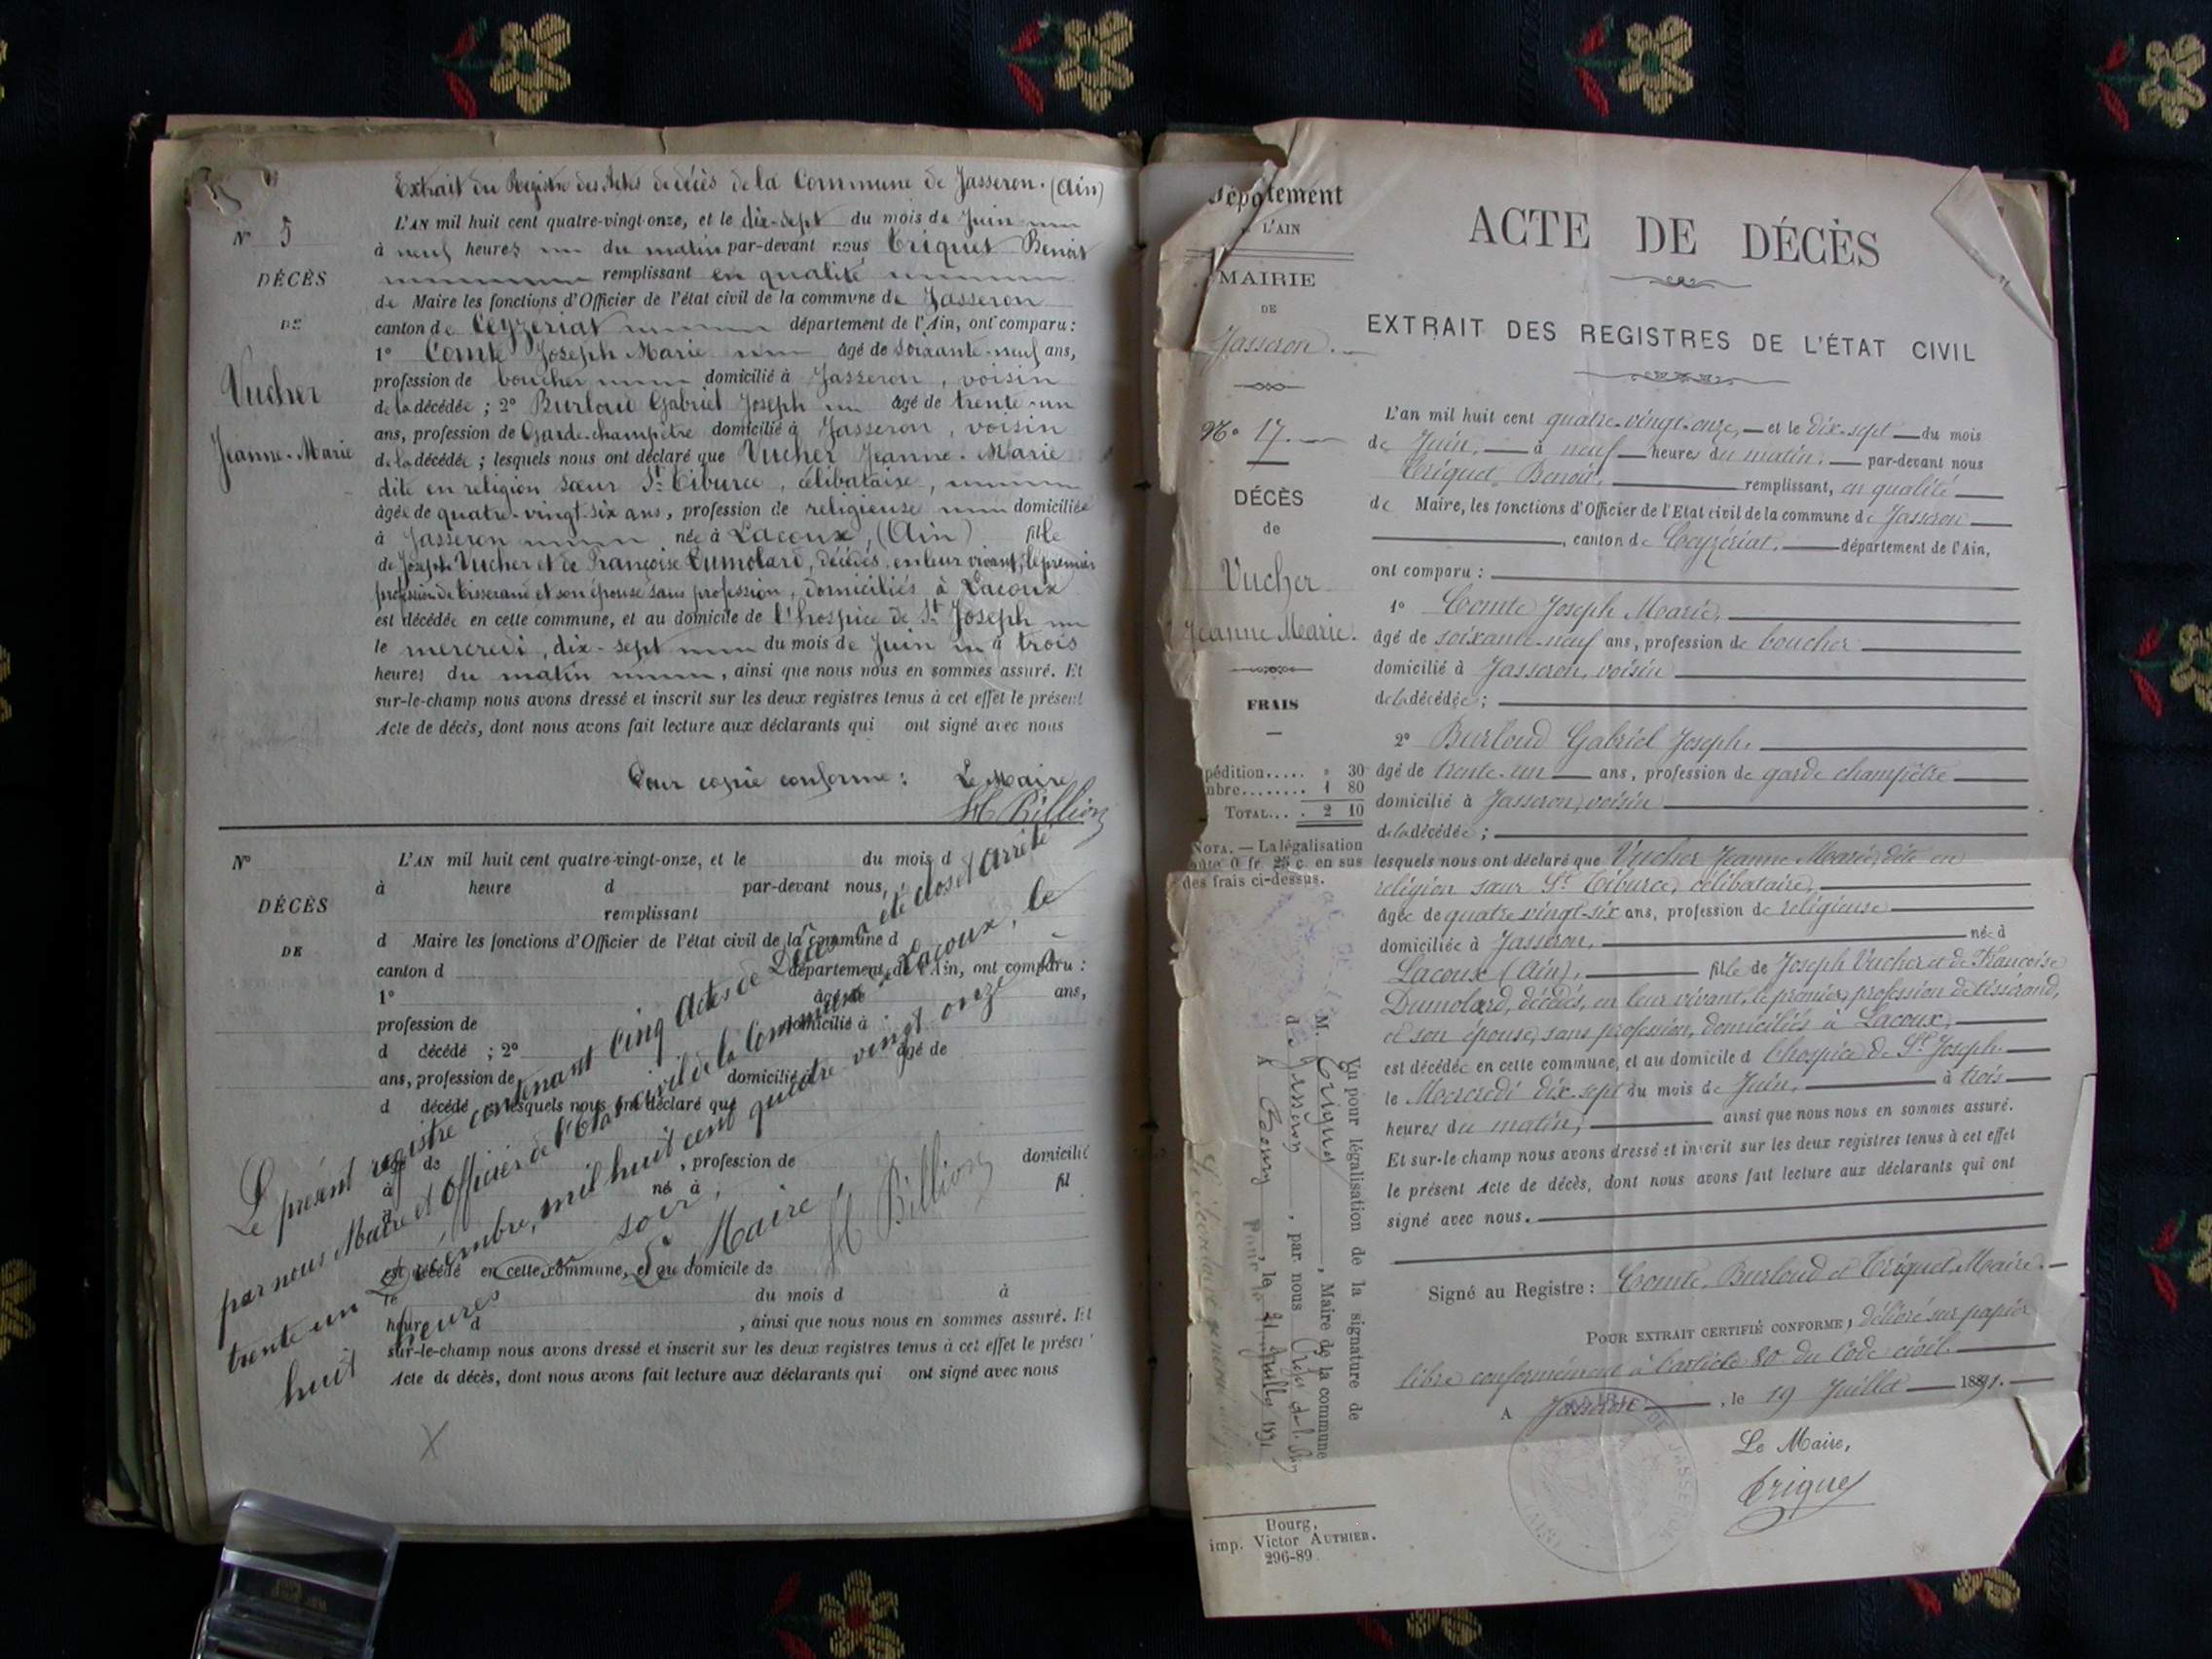 Extrait du Registre des Actes de décès de la Commune de Jasseron. (Ain)
N° 5
DÉCÈS
DE
Vucher
Jeanne-Marie
L'AN mil huit cent quatre-vingt-onze, et le dix-sept du mois de Juin
à neuf heures du matin par-devant nous Triquet Benoit
remplissant en qualité
de Maire les fonctions d'Officier de l'état civil de la commune de Jasseron
canton de Ceyzériat département de l'Ain, ont comparu :
1° Comte Joseph Marie âgé de soixante-neuf ans,
profession de boucher domicilié à Jasseron, voisin
de la décédée ; 2° Burloud Gabriel Joseph âgé de trente-un
ans, profession de Garde-champêtre domicilié à Jasseron, voisin
de la décédée ; lesquels nous ont déclaré que Vucher Jeanne-Marie
dite en religion sœur St Tiburce, célibataire,
âgée de quatre-vingt-six ans, profession de religieuse domiciliée
à Jasseron née à Lacoux, (Ain) fille
de Joseph Vucher et de Françoise Dumolard, décédés, en leur vivant, le premier
profession de tisserand et son épouse sans profession, domiciliés à Lacoux
est décédée en cette commune, et au domicile de l'hospice de St Joseph
le mercredi, dix-sept du mois de Juin à trois
heures du matin, ainsi que nous nous en sommes assuré. Et
sur-le-champ nous avons dressé et inscrit sur les deux registres tenus à cet effet le présent
Acte de décès, dont nous avons fait lecture aux déclarants qui ont signé avec nous
Pour copie conforme : Le Maire
Billion
N°
DÉCÈS
DE
L'AN mil huit cent quatre-vingt-onze, et le du mois d
à heure d par-devant nous,
remplissant
d Maire les fonctions d'Officier de l'état civil de la commune d
canton d département de l'Ain, ont comparu :
1° âgé de ans,
profession de domicilié à
d décédé ; 2° âgé de
ans, profession de domicilié à
d décédé ; lesquels nous ont déclaré que
âgé de , profession de domicilié
à né à fil
est décédé en cette commune, et au domicile de
le du mois d à
heure d , ainsi que nous nous en sommes assuré. Et
sur-le-champ nous avons dressé et inscrit sur les deux registres tenus à cet effet le présent
Acte de décès, dont nous avons fait lecture aux déclarants qui ont signé avec nous
Le présent registre contenant Cinq Actes de Décès a été clos et arrêté
par nous Maire et Officier de l'Etat civil de la Commune de Lacoux, le
trente un Décembre, mil huit cent quatre vingt onze à
huit heures du soir.
Le Maire
Billion
Département
L'AIN
MAIRIE
DE
Jasseron.
N° 17.
DÉCÈS
de
Vucher
Jeanne Marie.
FRAIS
pédition..... » 30
mbre........ 1 80
TOTAL... . 2 10
NOTA. — La légalisation
coûte 0 fr. 25 c. en sus
des frais ci-dessus.
ACTE DE DÉCÈS
EXTRAIT DES REGISTRES DE L'ÉTAT CIVIL
L'an mil huit cent quatre-vingt-onze, et le dix-sept du mois
de Juin, à neuf heures du matin, par-devant nous
Triquet Benoit, remplissant, en qualité
de Maire, les fonctions d'Officier de l'Etat civil de la commune de Jasseron
, canton de Ceyzériat, département de l'Ain,
ont comparu :
1° Comte Joseph Marie,
âgé de soixante-neuf ans, profession de boucher
domicilié à Jasseron, voisin
de la décédée ;
2° Burloud Gabriel Joseph,
âgé de trente-un ans, profession de garde champêtre
domicilié à Jasseron, voisin
de la décédée ;
lesquels nous ont déclaré que Vucher Jeanne Marie, dite en
religion sœur St Tiburce, célibataire,
âgée de quatre vingt-six ans, profession de religieuse
domiciliée à Jasseron, née à
Lacoux (Ain), fille de Joseph Vucher et de Françoise
Dumolard, décédés, en leur vivant, le premier profession de tisserand,
et son épouse, sans profession, domiciliés à Lacoux,
est décédée en cette commune, et au domicile d l'hospice de St Joseph.
le Mercredi dix-sept du mois de Juin, à trois
heures du matin, ainsi que nous nous en sommes assuré.
Et sur-le champ nous avons dressé et inscrit sur les deux registres tenus à cet effet
le présent Acte de décès, dont nous avons fait lecture aux déclarants qui ont
signé avec nous.
Signé au Registre : Comte, Burloud et Triquet, Maire.
POUR EXTRAIT CERTIFIÉ CONFORME, délivré sur papier
libre conformément à l'article 80 du Code civil.
A Jasseron, le 19 Juillet 1891.
Le Maire,
Triquet
MAIRIE DE JASSERON
(AIN)
Vu pour légalisation de la signature de
M. Triquet, Maire de la commune
de Jasseron, par nous Préfet de l'Ain
A Bourg, le 21 Juillet 1891
Bourg,
imp. Victor AUTHIER.
296-89